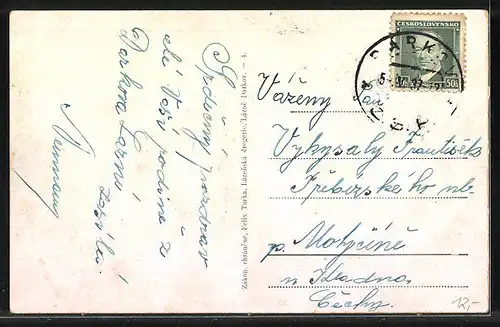 Srdečný pozdrav
celé Vaší rodině z
Darkova Lázní
zasílá
Neumann
Zákon. chráněno, Felix Turka, Lázeňská drogerie, Lázně Darkov. — 1.
ČESKOSLOVENSKO
50h
DARKOV
Vážený pan
Vykysalý František
p.
u Kladna,
Čechy.
12,-